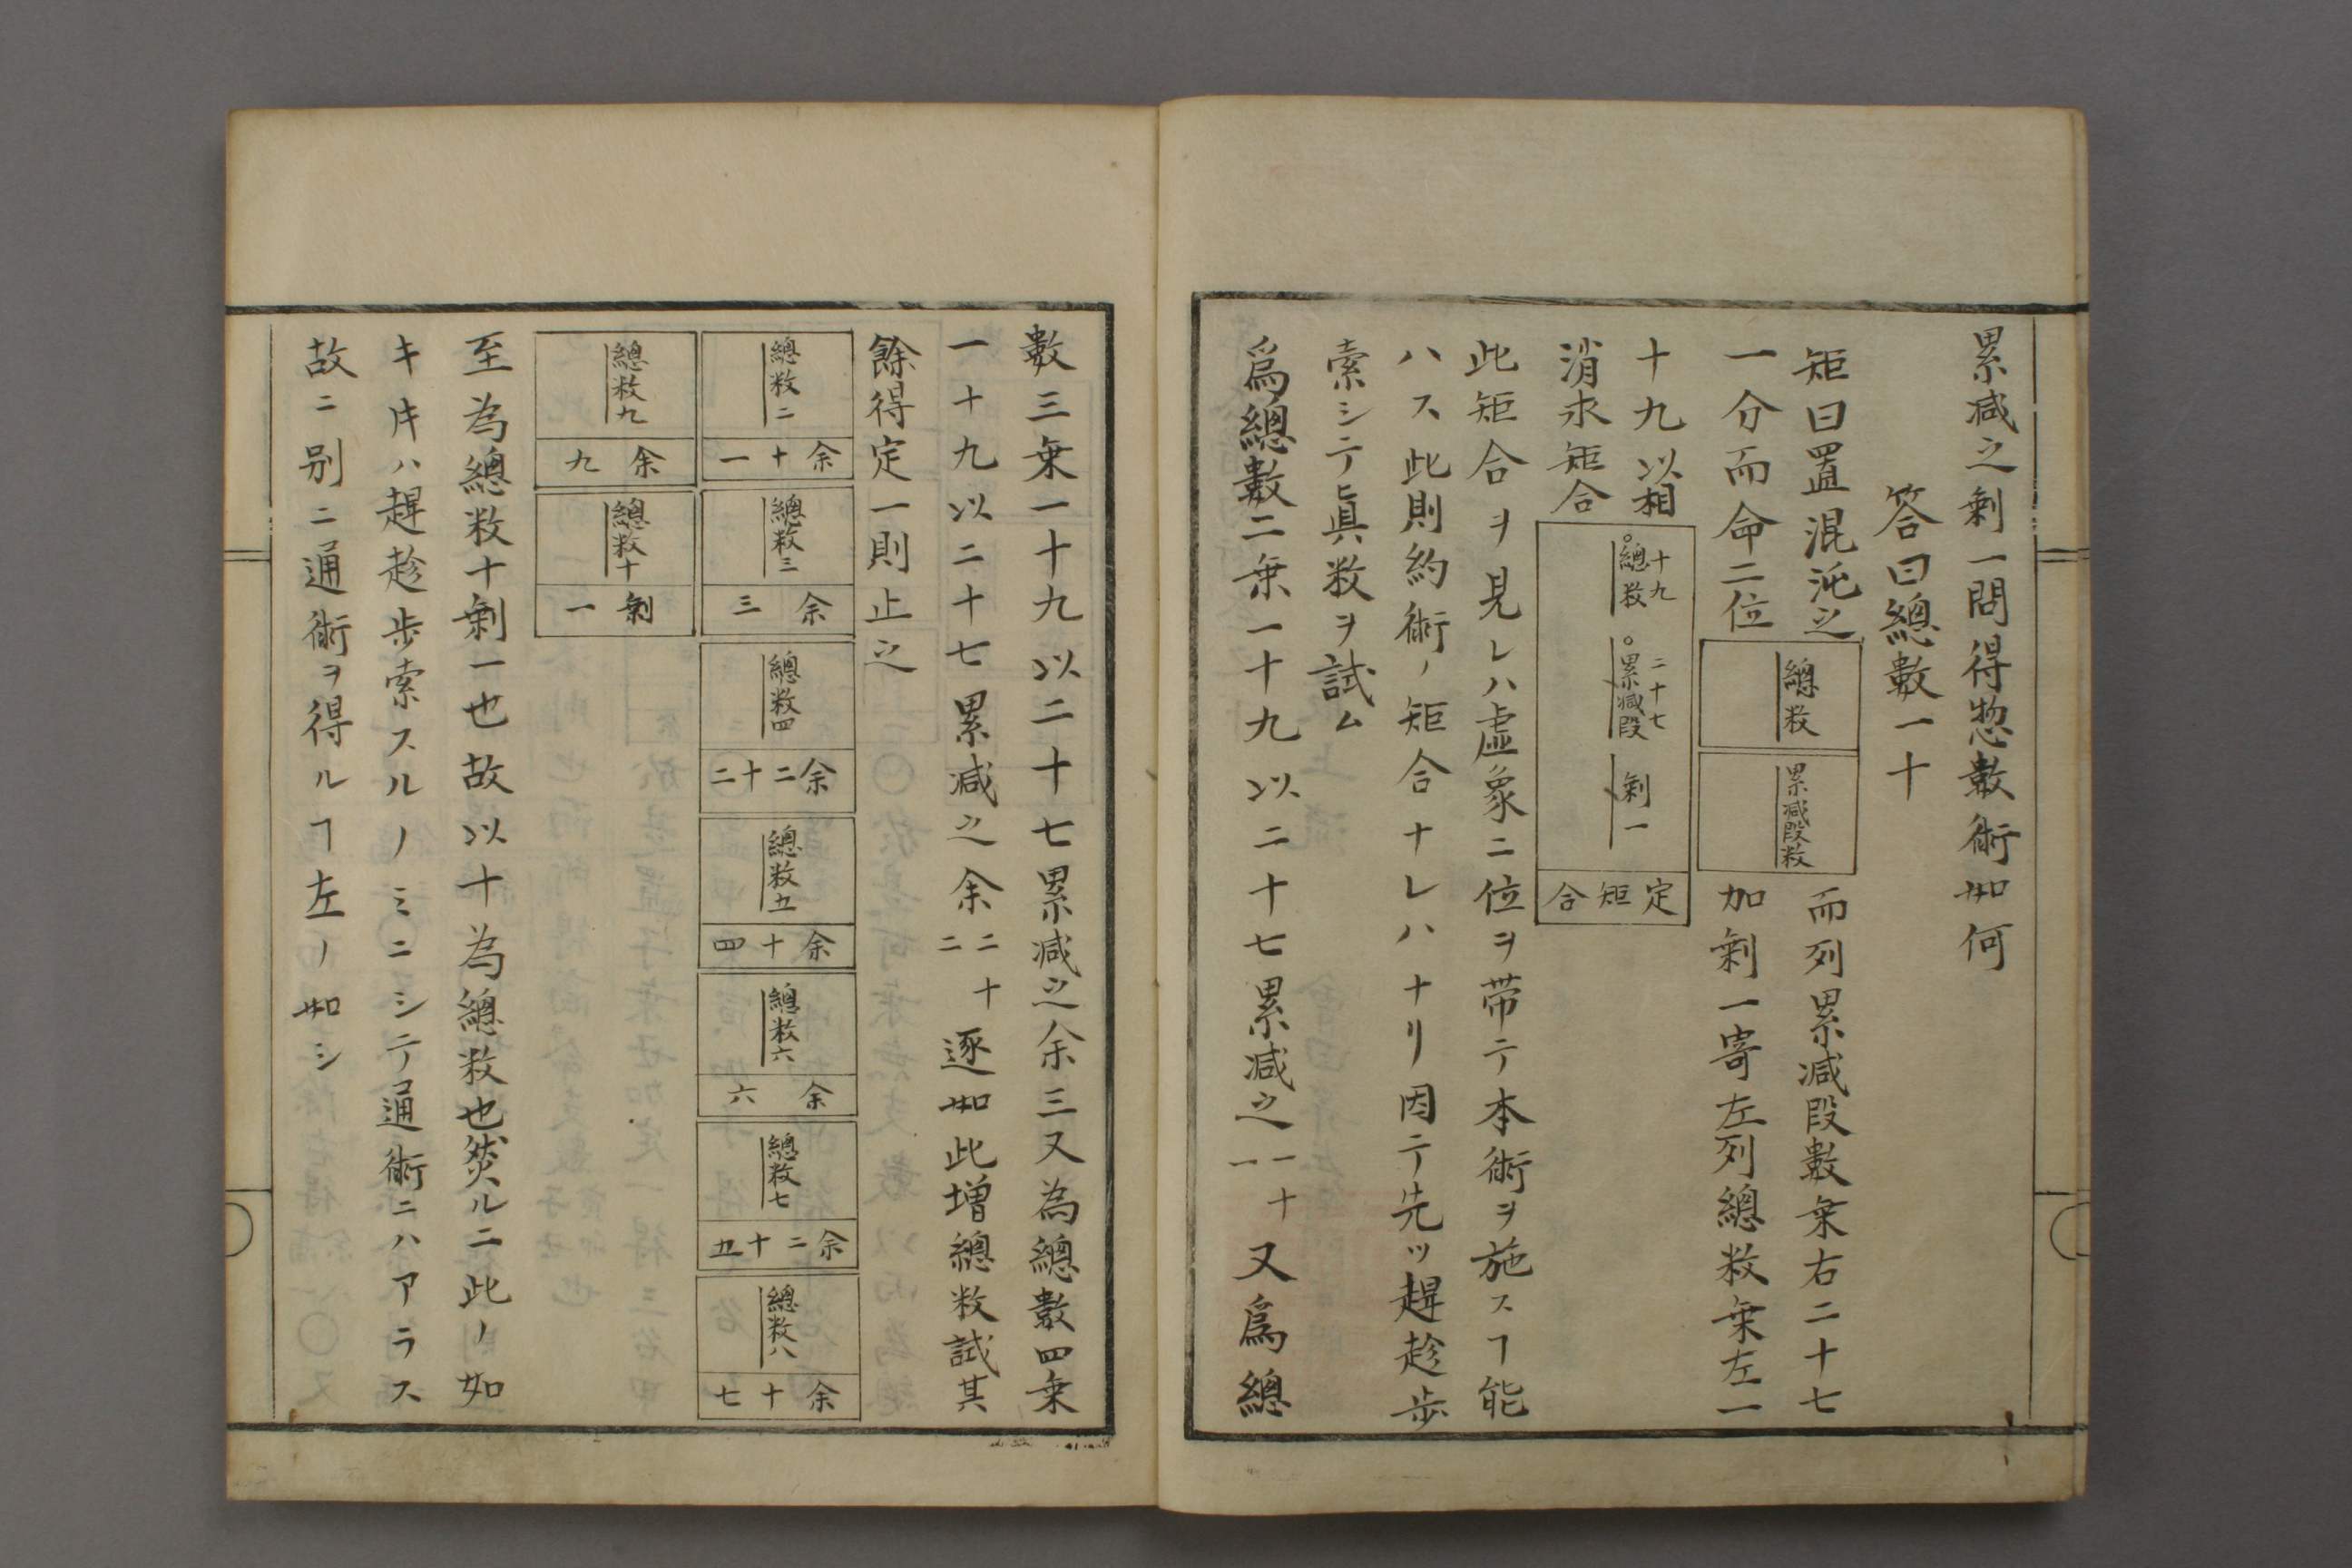 累減之剰一問得惣數術如何
答曰總數一十
矩曰置混沌之
一分而命二位
總数
累減段数
而列累減段數乗右二十七
加剰一寄左列總数乗左一
十九以相
消求矩合
十九
總数
二十七
累減段
剰一
定矩合
此矩合ヲ見レハ虚象ニ位ヲ帯テ本術ヲ施スヿ能
ハス此則約術ノ矩合ナレハナリ因テ先ツ趕趁歩
索シテ眞数ヲ試ム
爲總數二乗一十九以二十七累減之一十一又爲總
數三乗一十九以二十七累減之余三又為總數四乗
一十九以二十七累減之余二十二逐如此増總数試其
餘得定一則止之
總数二
余十一
總数三
余三
總数四
余二十二
總数五
余十四
總数六
余六
總数七
余二十五
總数八
余十七
總数九
余九
總数十
剰一
至為總数十剰一也故以十為總数也然ルニ此ノ如
キ𪜈ハ趕趁歩索スルノミニシテ通術ニハアラス
故ニ別ニ通術ヲ得ルヿ左ノ如シ